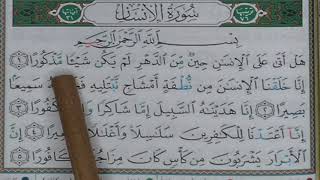 سُورَةُ الإِنسَانِ
بِسْمِ اللَّهِ الرَّحْمَٰنِ الرَّحِيمِ
هَلْ أَتَىٰ عَلَى الْإِنسَٰنِ حِينٌ مِّنَ الدَّهْرِ لَمْ يَكُن شَيْـًٔا مَّذْكُورًا ١
إِنَّا خَلَقْنَا الْإِنسَٰنَ مِن نُّطْفَةٍ أَمْشَاجٍ نَّبْتَلِيهِ سَمِيعًۢا
بَصِيرًا ٢ إِنَّا هَدَيْنَٰهُ السَّبِيلَ إِمَّا شَاكِرًا كَفُورًا ٣
إِنَّا أَعْتَدْنَا لِلْكَٰفِرِينَ سَلَٰسِلَا۟ وَأَغْلَٰلًا ٤
إِنَّ الْأَبْرَارَ يَشْرَبُونَ مِن كَأْسٍ كَانَ مِزَاجُهَا كَافُورًا ٥